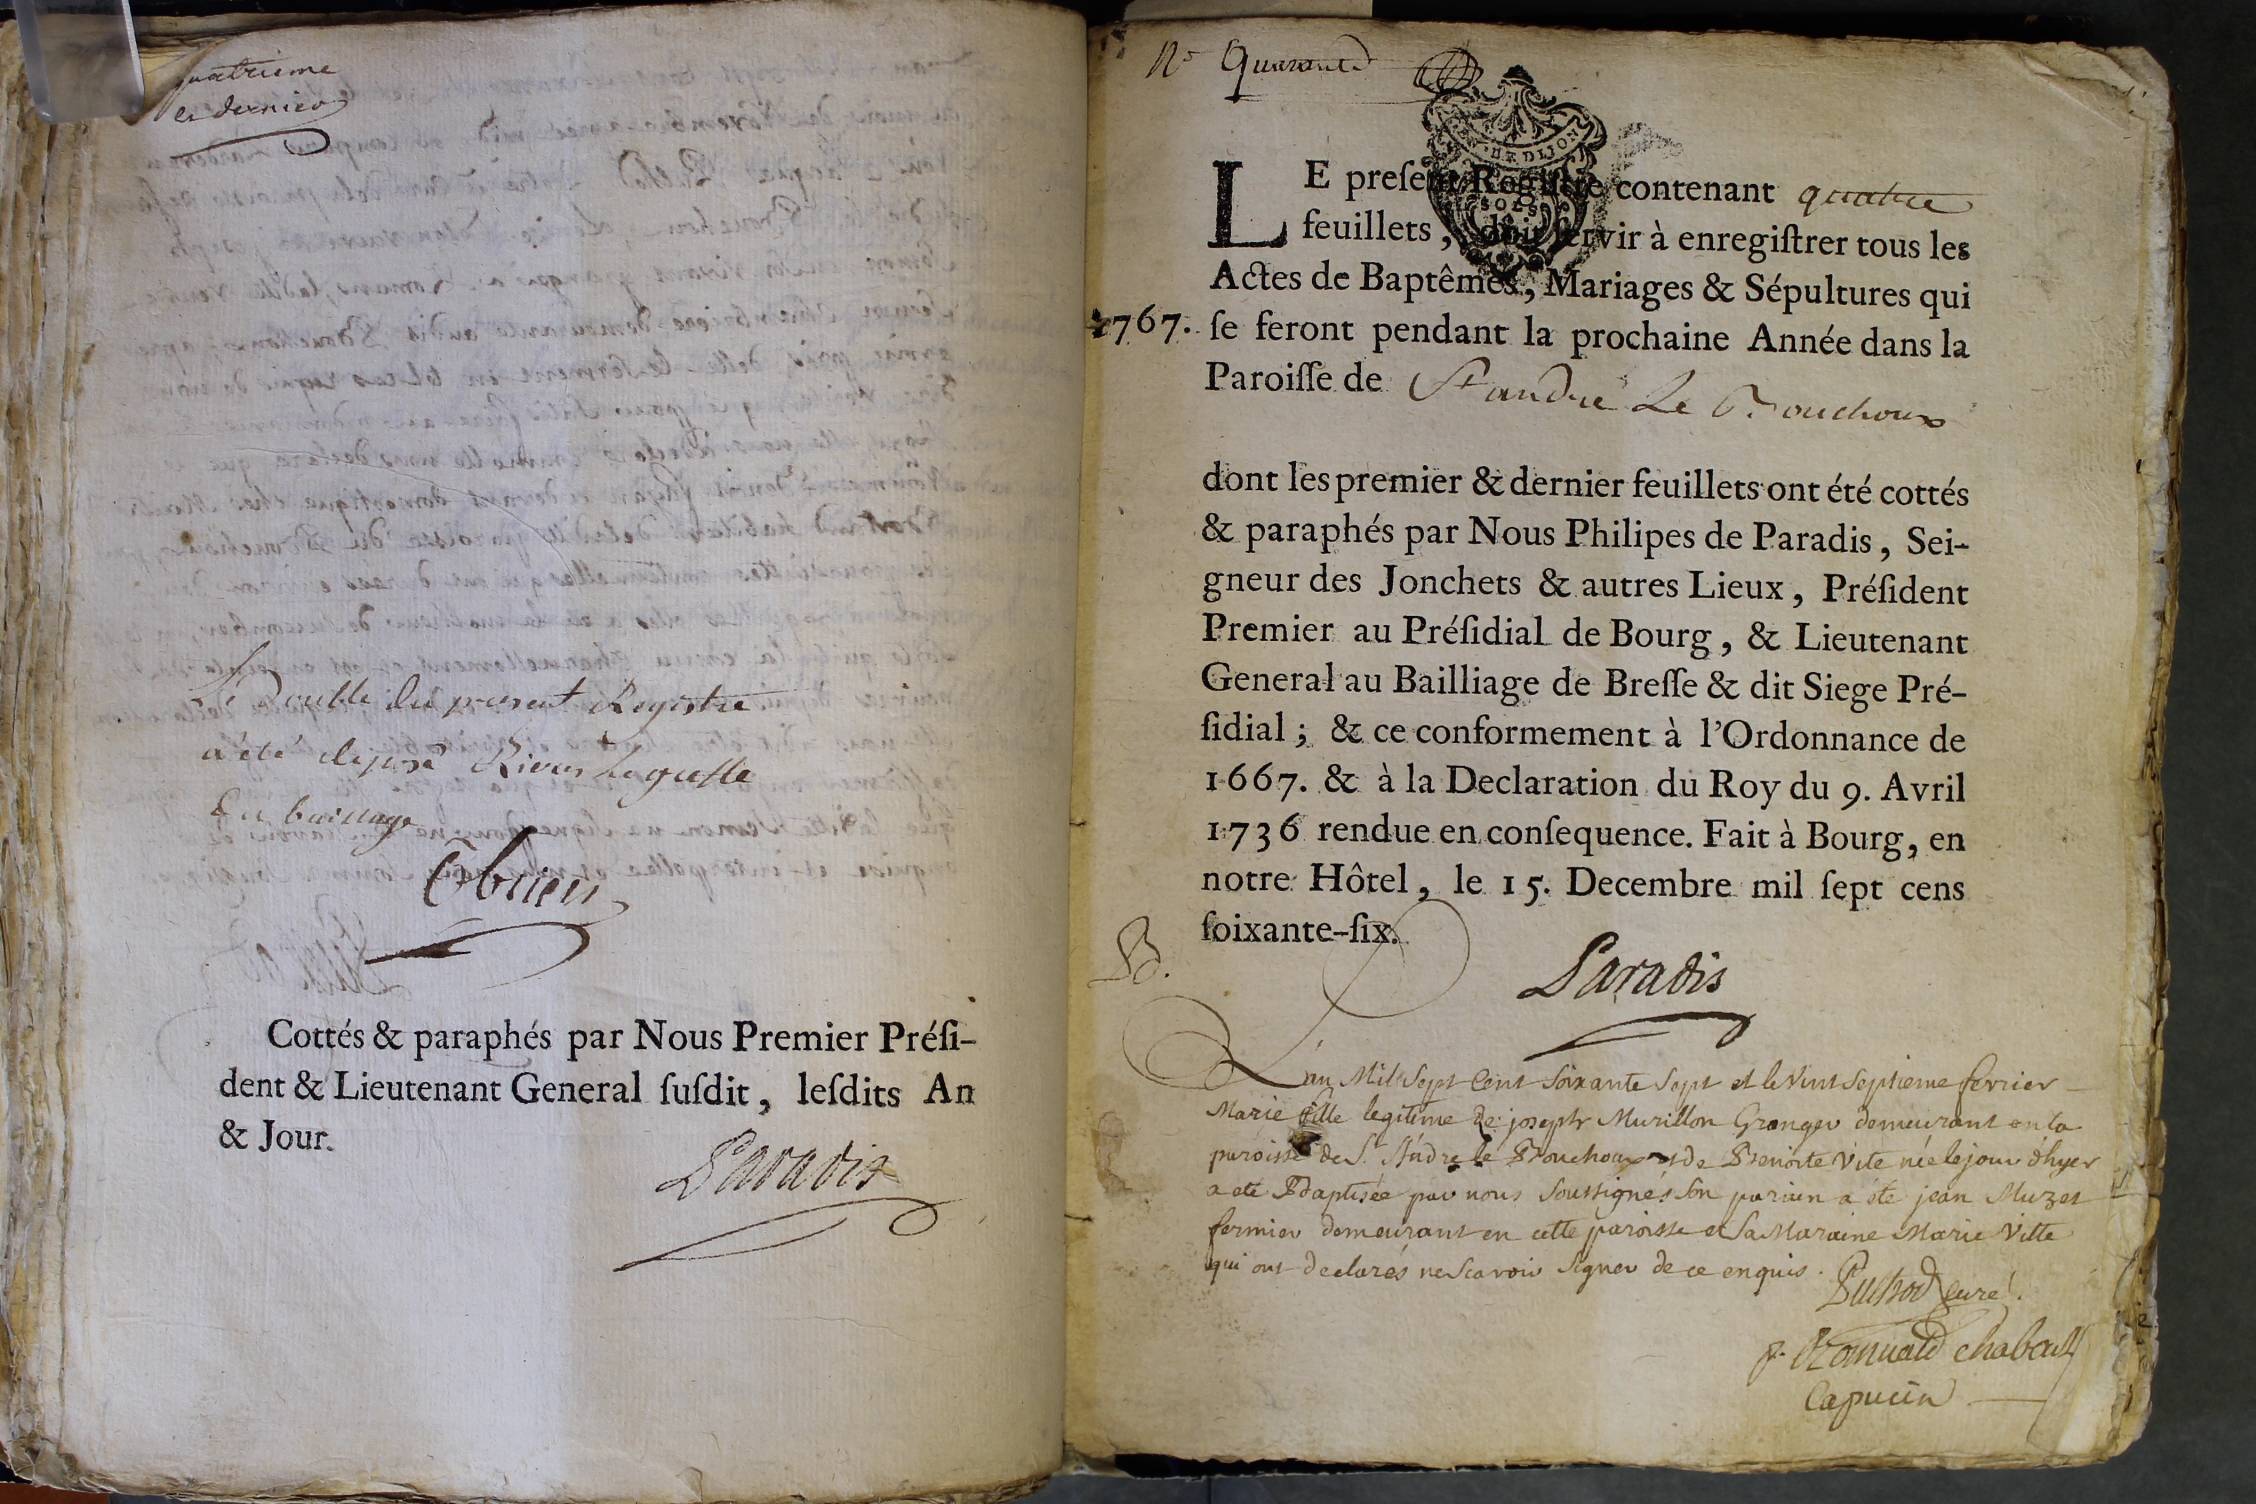 quatrieme
et dernier
Le Double du present Registre
a été deposé Riere Le greffe
Du bailliage
Cottés & paraphés par Nous Premier Préſi-
dent & Lieutenant General ſuſdit, leſdits An
& Jour.
Paradis
Nº Quarante
LE preſent Regiſtre contenant quatre
feuillets, doit ſervir à enregiſtrer tous les
Actes de Baptêmes, Mariages & Sépultures qui
1767. ſe feront pendant la prochaine Année dans la
Paroiſſe de St andré Le Bouchoux
dont les premier & dernier feuillets ont été cottés
& paraphés par Nous Philipes de Paradis, Sei-
gneur des Jonchets & autres Lieux, Préſident
Premier au Préſidial de Bourg, & Lieutenant
General au Bailliage de Breſſe & dit Siege Pré-
ſidial; & ce conformement à l'Ordonnance de
1667. & à la Declaration du Roy du 9. Avril
1736 rendue en conſequence. Fait à Bourg, en
notre Hôtel, le 15. Decembre mil ſept cens
ſoixante-ſix.
B.
Paradis
L'an Mil Sept Cent Soixante Sept et le Vint Septieme fevrier
Marie fille legitime de joseph Murillon Granger demeurant en la
paroisse de St. André le Bouchoux et de Benoite Vite née le jour d'hyer
a eté Baptisée par nous Soussignés Son parain a été jean Muzet
fermier demeurant en cette paroisse et Sa Maraine Marie Vitte
qui ont declarés ne Scavoir Signer de ce enquis.
Curé.
f. Romuald
Capucin